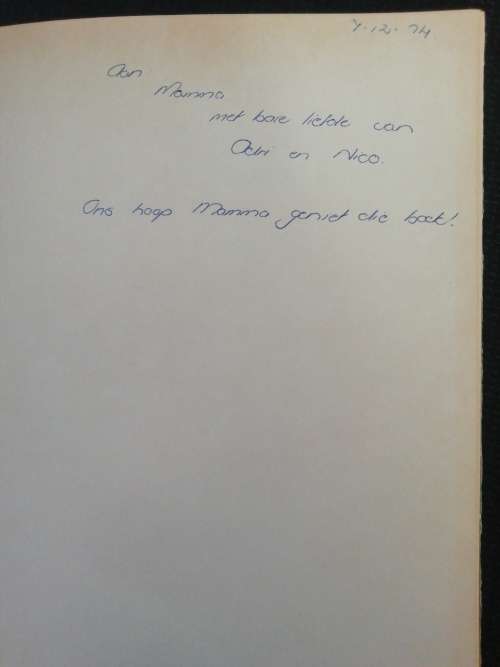 7.12.74.
Aan
Mamma
met baie liefde van
Adri en Nico.
Ons hoop Mamma geniet die boek!